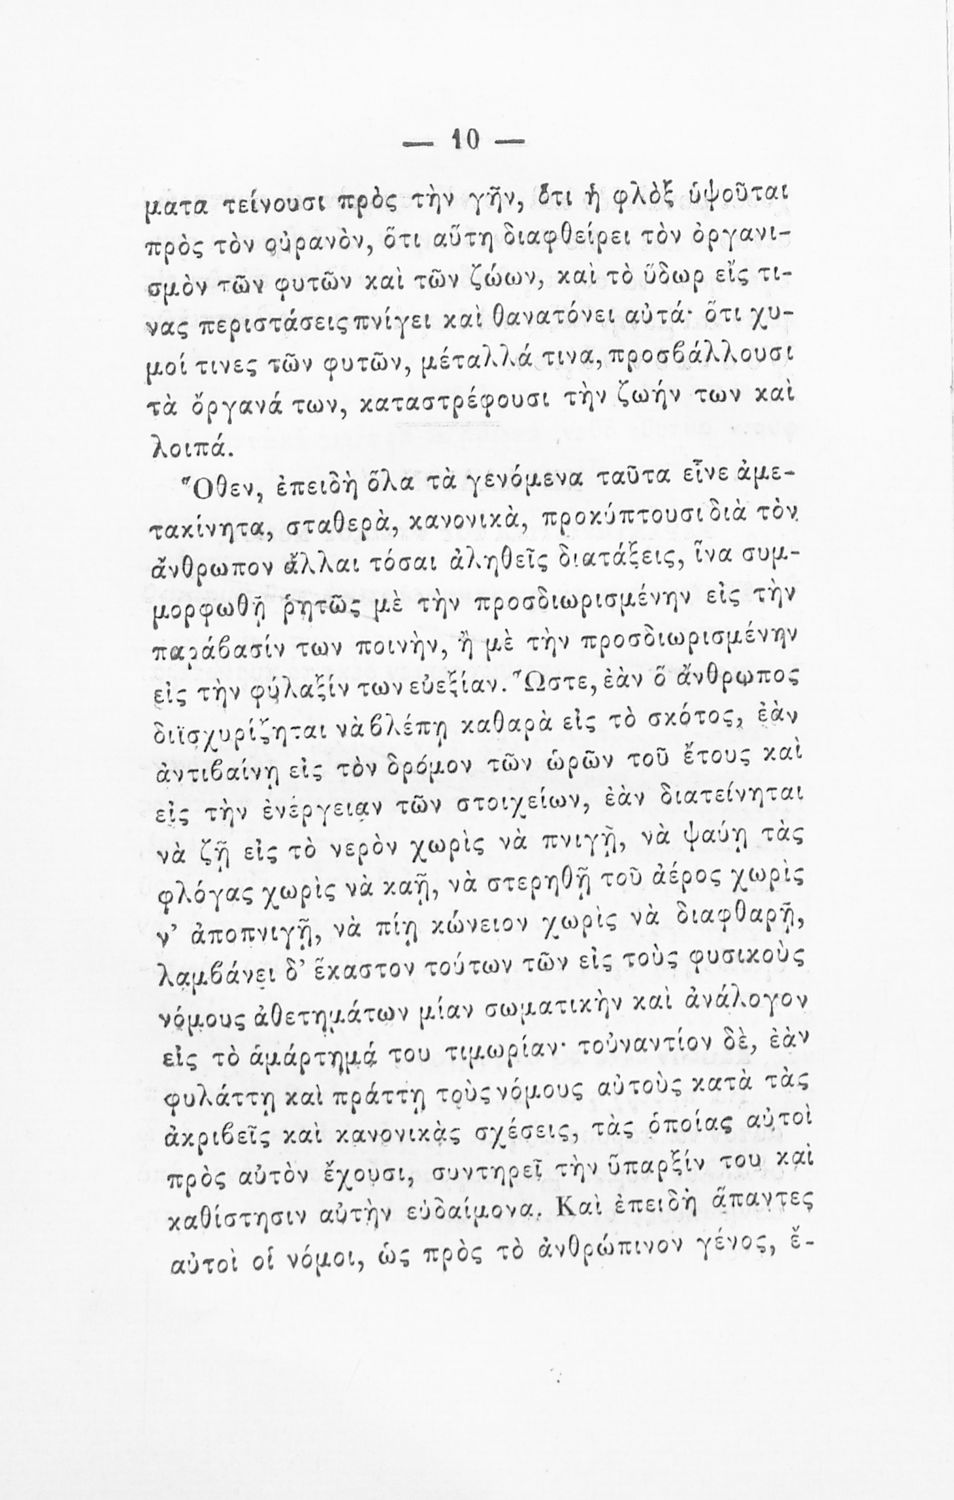 — 10 —
ματα τείνουσι πρὸς τὴν γῆν, ὅτι ἡ φλὸξ ὑψοῦται
πρὸς τὸν οὐρανὸν, ὅτι αὕτη διαφθείρει τὸν ὀργανι-
σμὸν τῶν φυτῶν καὶ τῶν ζώων, καὶ τὸ ὕδωρ εἴς τι-
νας περιστάσεις πνίγει καὶ θανατόνει αὐτά· ὅτι χυ-
μοί τινες τῶν φυτῶν, μέταλλά τινα, προσβάλλουσι
τὰ ὄργανά των, καταστρέφουσι τὴν ζωήν των καὶ
λοιπά.
Ὅθεν, ἐπειδὴ ὅλα τὰ γενόμενα ταῦτα εἶνε ἀμε-
τακίνητα, σταθερὰ, κανονικὰ, προκύπτουσι διὰ τὸν
ἄνθρωπον ἄλλαι τόσαι ἀληθεῖς διατάξεις, ἵνα συμ-
μορφωθῇ ῥητῶς μὲ τὴν προσδιωρισμένην εἰς τὴν
παράβασίν των ποινὴν, ἢ μὲ τὴν προσδιωρισμένην
εἰς τὴν φύλαξίν των εὐεξίαν. Ὥστε, ἐὰν ὅ ἄνθρωπος
διϊσχυρίζηται νὰ βλέπῃ καθαρὰ εἰς τὸ σκότος, ἐὰν
ἀντιβαίνῃ εἰς τὸν δρόμον τῶν ὡρῶν τοῦ ἔτους καὶ
εἰς τὴν ἐνέργειαν τῶν στοιχείων, ἐὰν διατείνηται
νὰ ζῇ εἰς τὸ νερὸν χωρὶς νὰ πνιγῇ, νὰ ψαύῃ τὰς
φλόγας χωρὶς νὰ καῇ, νὰ στερηθῇ τοῦ ἀέρος χωρὶς
ν’ ἀποπνιγῇ, νὰ πίῃ κώνειον χωρὶς νὰ διαφθαρῇ,
λαμβάνει δ’ ἕκαστον τούτων τῶν εἰς τοὺς φυσικοὺς
νόμους ἀθετημάτων μίαν σωματικὴν καὶ ἀνάλογον
εἰς τὸ ἁμάρτημά του τιμωρίαν· τοὐναντίον δὲ, ἐὰν
φυλάττῃ καὶ πράττῃ τοὺς νόμους αὐτοὺς κατὰ τὰς
ἀκριβεῖς καὶ κανονικὰς σχέσεις, τὰς ὁποίας αὐτοὶ
πρὸς αὐτὸν ἔχουσι, συντηρεῖ τὴν ὕπαρξίν του καὶ
καθίστησιν αὐτὴν εὐδαίμονα. Καὶ ἐπειδὴ ἅπαντες
αὐτοὶ οἱ νόμοι, ὡς πρὸς τὸ ἀνθρώπινον γένος, ἔ-